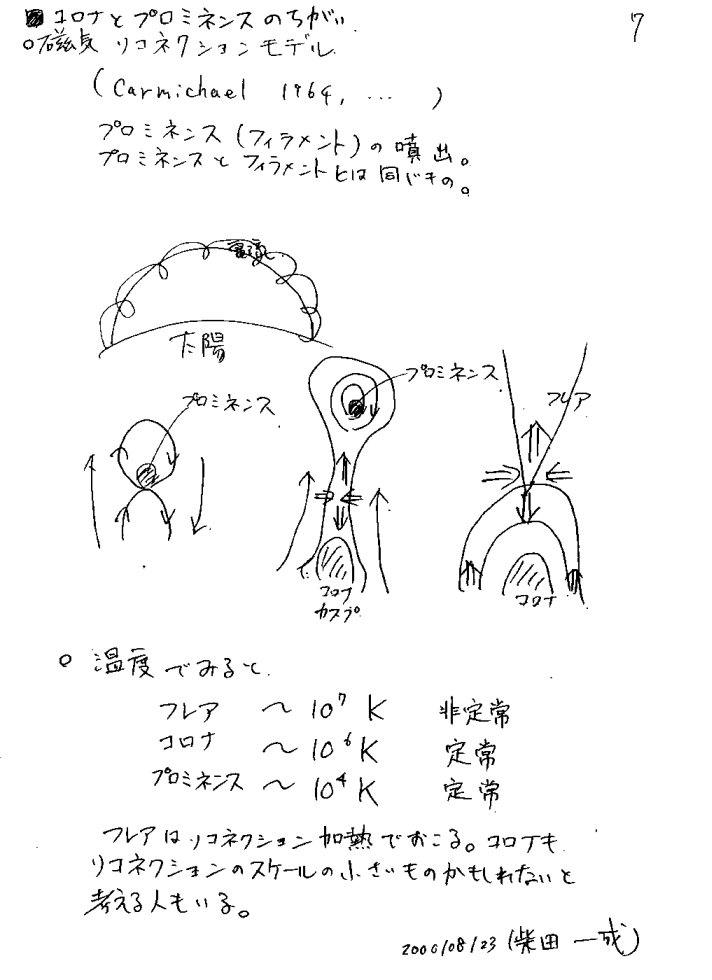 コロナとプロミネンスのちがい
7
○磁気リコネクションモデル
(Carmichael 1964, … )
プロミネンス(フィラメント)の噴出。
プロミネンスとフィラメントとは同じもの。
太陽
プロミネンス
プロミネンス
フレア
コロナ
カスプ
コロナ
○ 温度でみると
フレア 〜 10⁷ K 非定常
コロナ 〜 10⁶ K 定常
プロミネンス 〜 10⁴ K 定常
フレアはリコネクション加熱でおこる。コロナも
リコネクションのスケールの小さいものかもしれないと
考える人もいる。
2000/08/23 (柴田 一成)